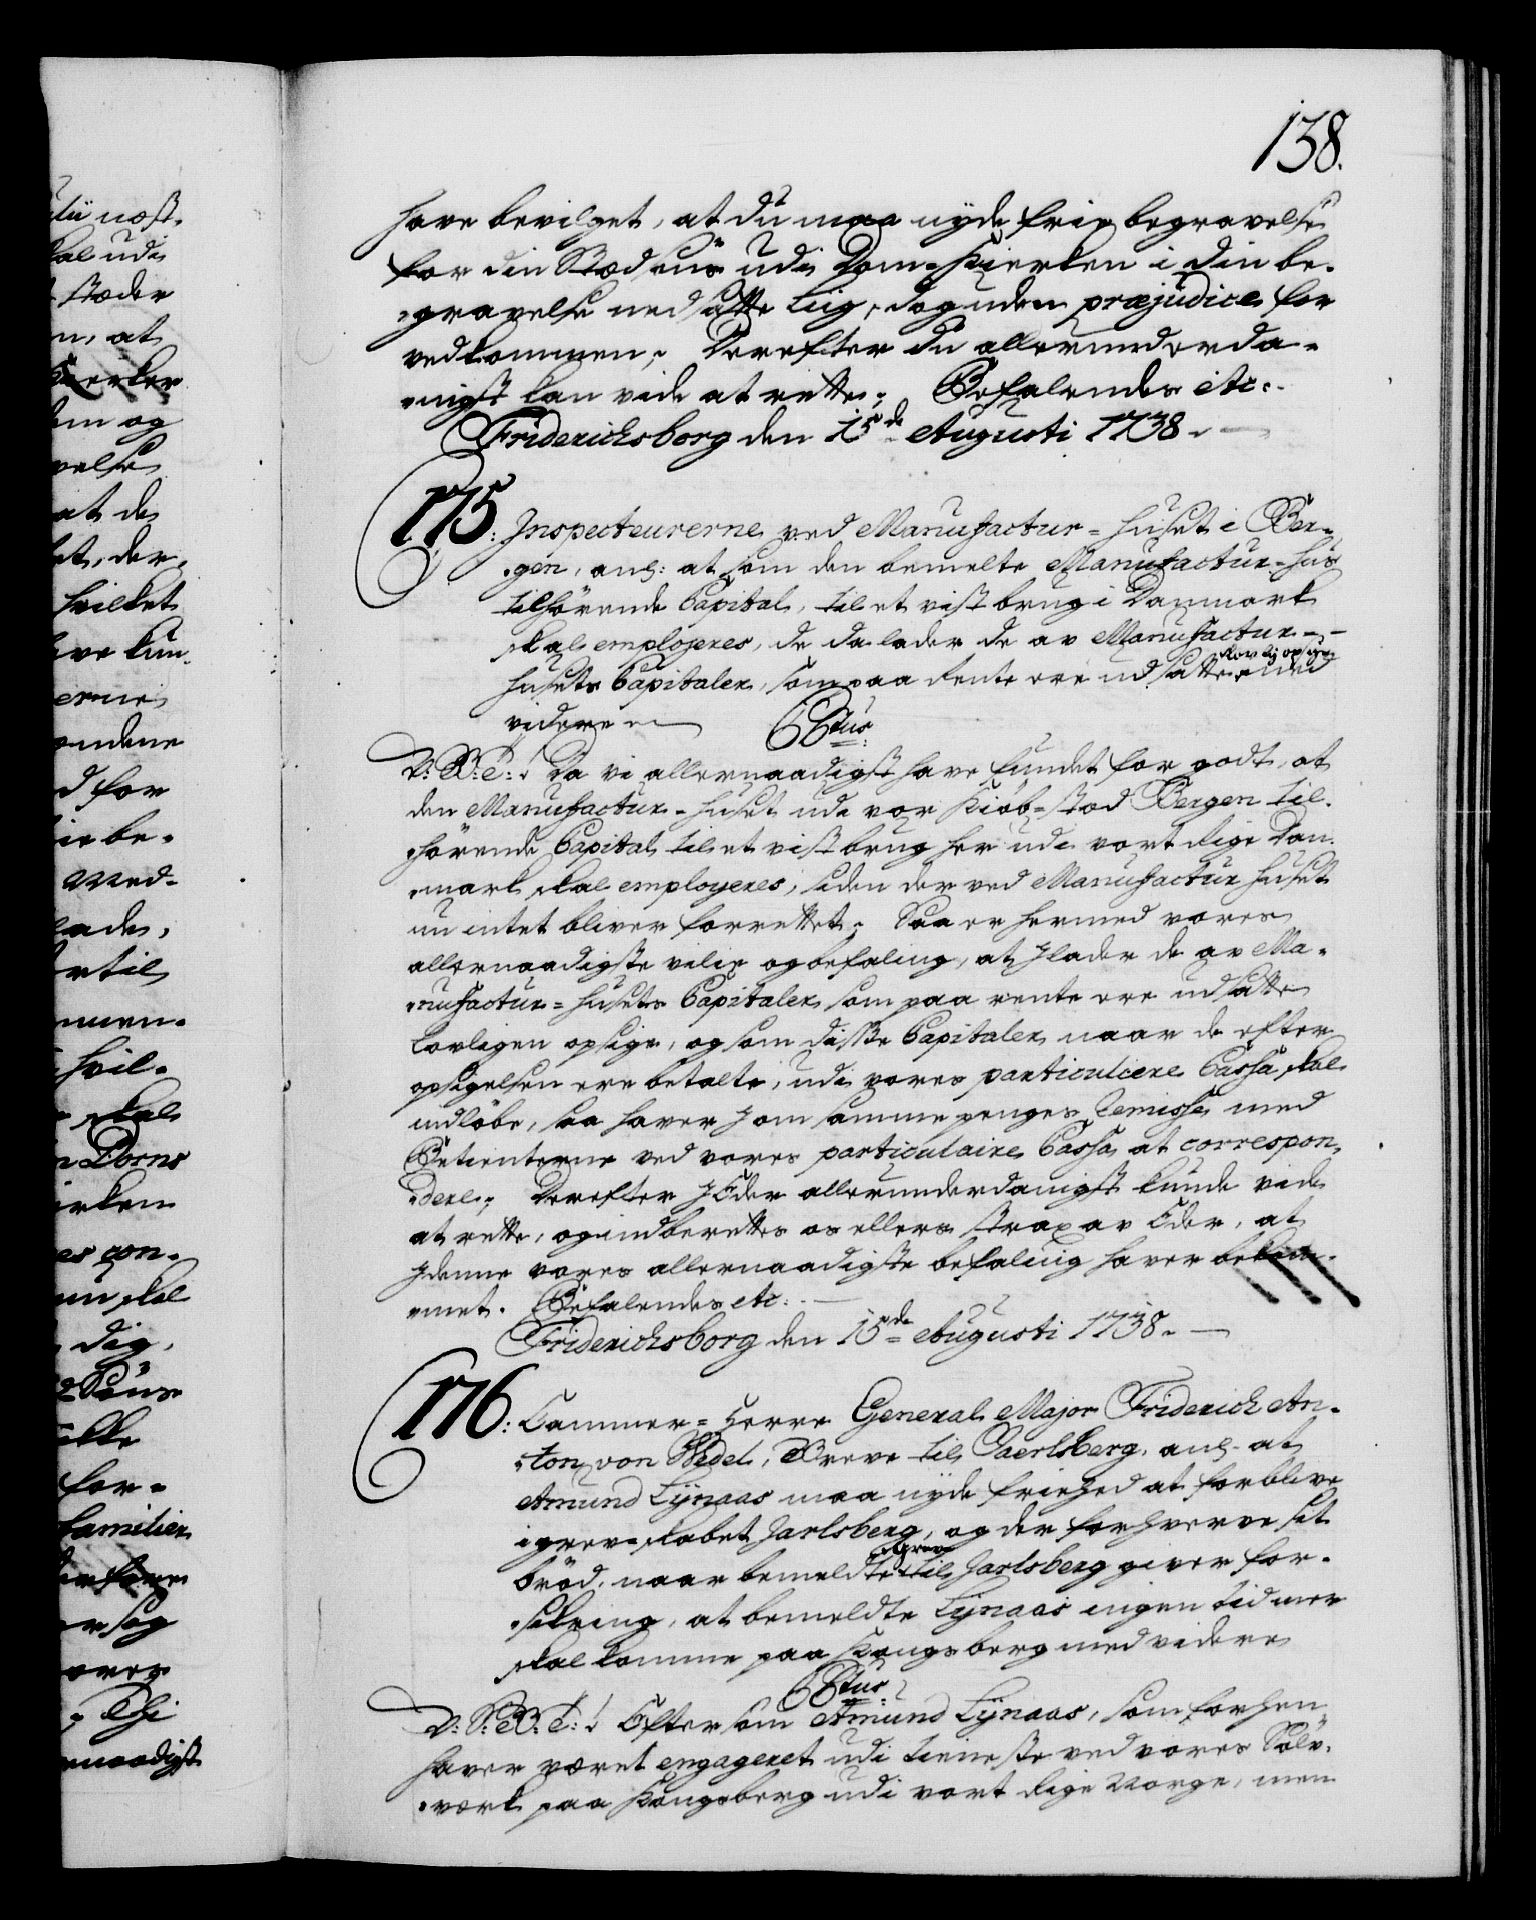 138.
have bevilget, at du maa nyde frie begravelse
for din Stedsøns udi Dom-Kierken i din be-
gravelse nedsatte Liig, dog uden præjudice for
vedkommen; Derefter du allerunderda-
nigst kan vide at rette; Befalendes etc:
Friderichsborg den 15de Augusti 1738.
175: Inspecteurerne ved Manufactur-Huset i Ber-
gen, anl: at som den bemelte Manufactur-Huus
tilhörende Capital, til et vist brug i Danmark
skal employeres, de da lader de av Manufactur-
Husets Capitaler, som paa Rente ere udsatte lovlig opsige, med
videre
CCtus
V: G: T: ! Da vi allernaadigst have fundet for godt, at
den Manufactur-Huset udi vor Kiöb-stad Bergen til-
hörende Capital til et vist brug her udi vort Rige Dan-
mark skal employeres, siden der ved Manufactur Huset
nu intet bliver forrettet; Saa er hermed vores
allernaadigste vilie og befaling, at I lader de av Ma-
nufactur-Husets Capitaler som paa rente ere udsatte
lovligen opsige, og som disse Capitaler naar de efter
opsigelsen ere betalte, udi vores particuliere Cassa skal
indlöbe, saa haver I om samme penges Remisse med
Betienterne ved vores particulaire Cassa at correspon-
dere; Derefter I Eder allerunderdanigst kunde vide
at rette, og indberettes os ellers strax av Eder, at
I denne vores allernaadigste befaling haver bekom-
met. Befalendes etc:
Friderichsborg den 15de Augusti 1738.
176: Cammer-Herre General Major Friderich An-
ton von Wedel, Greve til Jaerlsberg, anl. at
Amund Lÿnaas maa nyde friehed at forblive
i grev-skabet Jarlsberg, og der forhverve sit
bröd, naar bemeldte Greve til Jarlsberg giver for-
sikring, at bemeldte Lÿnaas ingen tid mer
skal komme paa Kongsberg med videre
CCtus
V: S: G: T: ! Eftersom Amund Lÿnaas, som forhen
haver været engageret udi tieneste ved vores Sölv-
værk paa Kongsberg udi vort Rige Norge, men